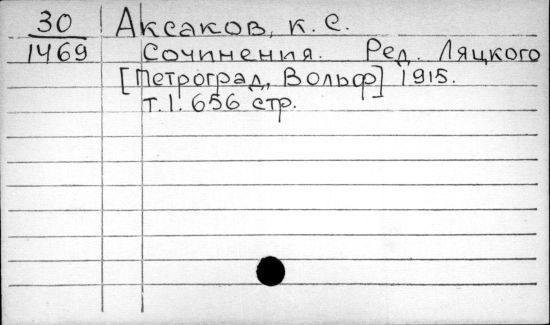 30 Аксаков, к. с.
1469 Сочинения. Ред. Ляцкого
[Петроград, Вольф] 1915.
т.1. 656 стр.